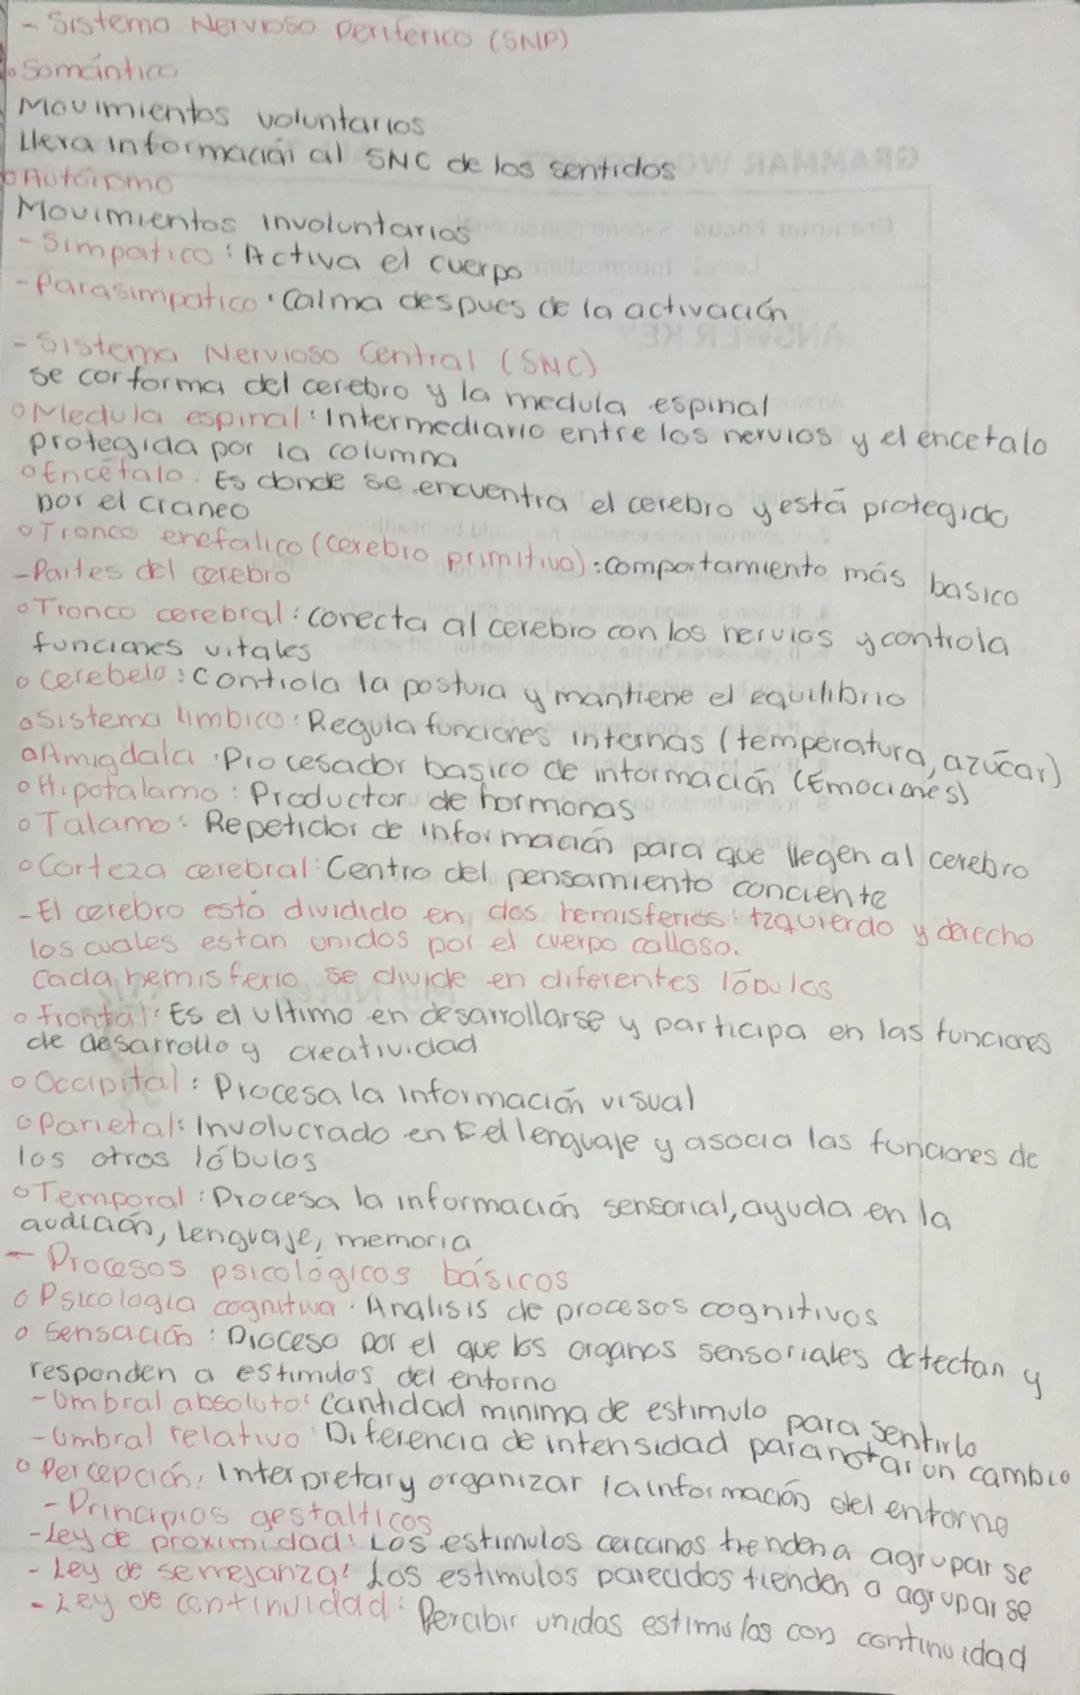 - Sistema Nervioso periferico (SNP)
o Somántico
Movimientos voluntarios
Lleva información al SNC de los sentidos
o Autónomo
Movimientos involuntarios
- Simpatico: Activa el cuerpo
- Parasimpatico: Calma despues de la activación
- Sistema Nervioso Central (SNC)
se corforma del cerebro y la medula espinal
o Medula espinal: Intermediario entre los nervios y el encefalo
protegida por la columna
o Encéfalo: Es donde se encuentra el cerebro y está protegido
por el craneo
o Tronco enefalico (cerebro primitivo): comportamiento más basico
- Partes del cerebro
o Tronco cerebral: conecta al cerebro con los nervios y controla
funciones vitales
o cerebelo: Controla la postura y mantiene el equilibrio
o Sistema limbico: Regula funciones internas (temperatura, azúcar)
o Amigdala: Procesador basico de información (Emociones)
o Hipotalamo: Productor de hormonas
o Talamo: Repetidor de información para que llegen al cerebro
o Corteza cerebral: Centro del pensamiento conciente
- El cerebro esta dividido en dos hemisferios: Izquierdo y derecho
los cuales estan unidos por el cuerpo calloso.
Cada hemisferio se divide en diferentes lóbulos
o Frontal: Es el ultimo en desarrollarse y participa en las funciones
de desarrollo y creatividad
o Occipital: Procesa la información visual
o Parietal: Involucrado en el lenguaje y asocia las funciones de
los otros lóbulos
o Temporal: Procesa la información sensorial, ayuda en la
audición, lenguaje, memoria
- Procesos psicológicos básicos
o Psicologia cognitiva: Analisis de procesos cognitivos
o Sensación: Proceso por el que los organos sensoriales detectan y
responden a estimulos del entorno
- Umbral absoluto: Cantidad minima de estimulo para sentirlo
- Umbral relativo: Diferencia de intensidad para notar un cambio
o Percepción: Interpretar y organizar la información del entorno
- Principios gestalticos
- Ley de proximidad: Los estimulos cercanos tienden a agruparse
- Ley de semejanza: Los estimulos parecidos tienden a agruparse
- Ley de continuidad: Percibir unidos estimulos con continuidad